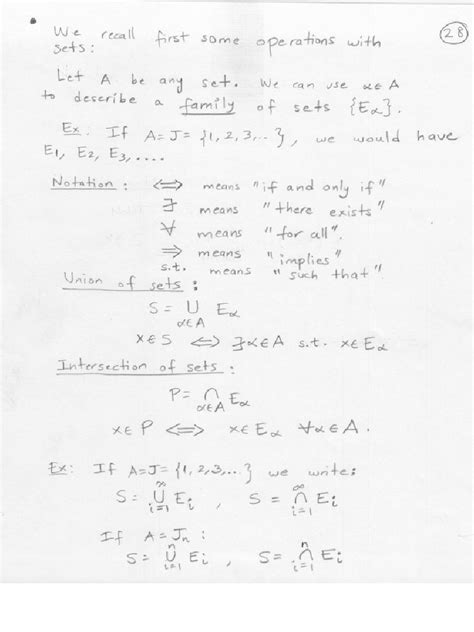 28
We recall first some operations with
sets:
Let A be any set. We can use α∈A
to describe a family of sets {Eα}.
Ex: If A=J= {1,2,3,...}, we would have
E1, E2, E3, ....
Notation: ⟺ means "if and only if"
∃ means "there exists"
∀ means "for all".
⇒ means "implies"
s.t. means "such that"
Union of sets:
S = ∪ Eα
α∈A
x∈S ⟺ ∃α∈A s.t. x∈Eα
Intersection of sets:
P = ∩ Eα
α∈A
x∈P ⟺ x∈Eα ∀α∈A.
Ex: If A=J= {1,2,3,...} we write:
∞ ∞
S = ∪ Ei , S = ∩ Ei
i=1 i=1
If A = Jn :
n n
S = ∪ Ei , S = ∩ Ei
i=1 i=1